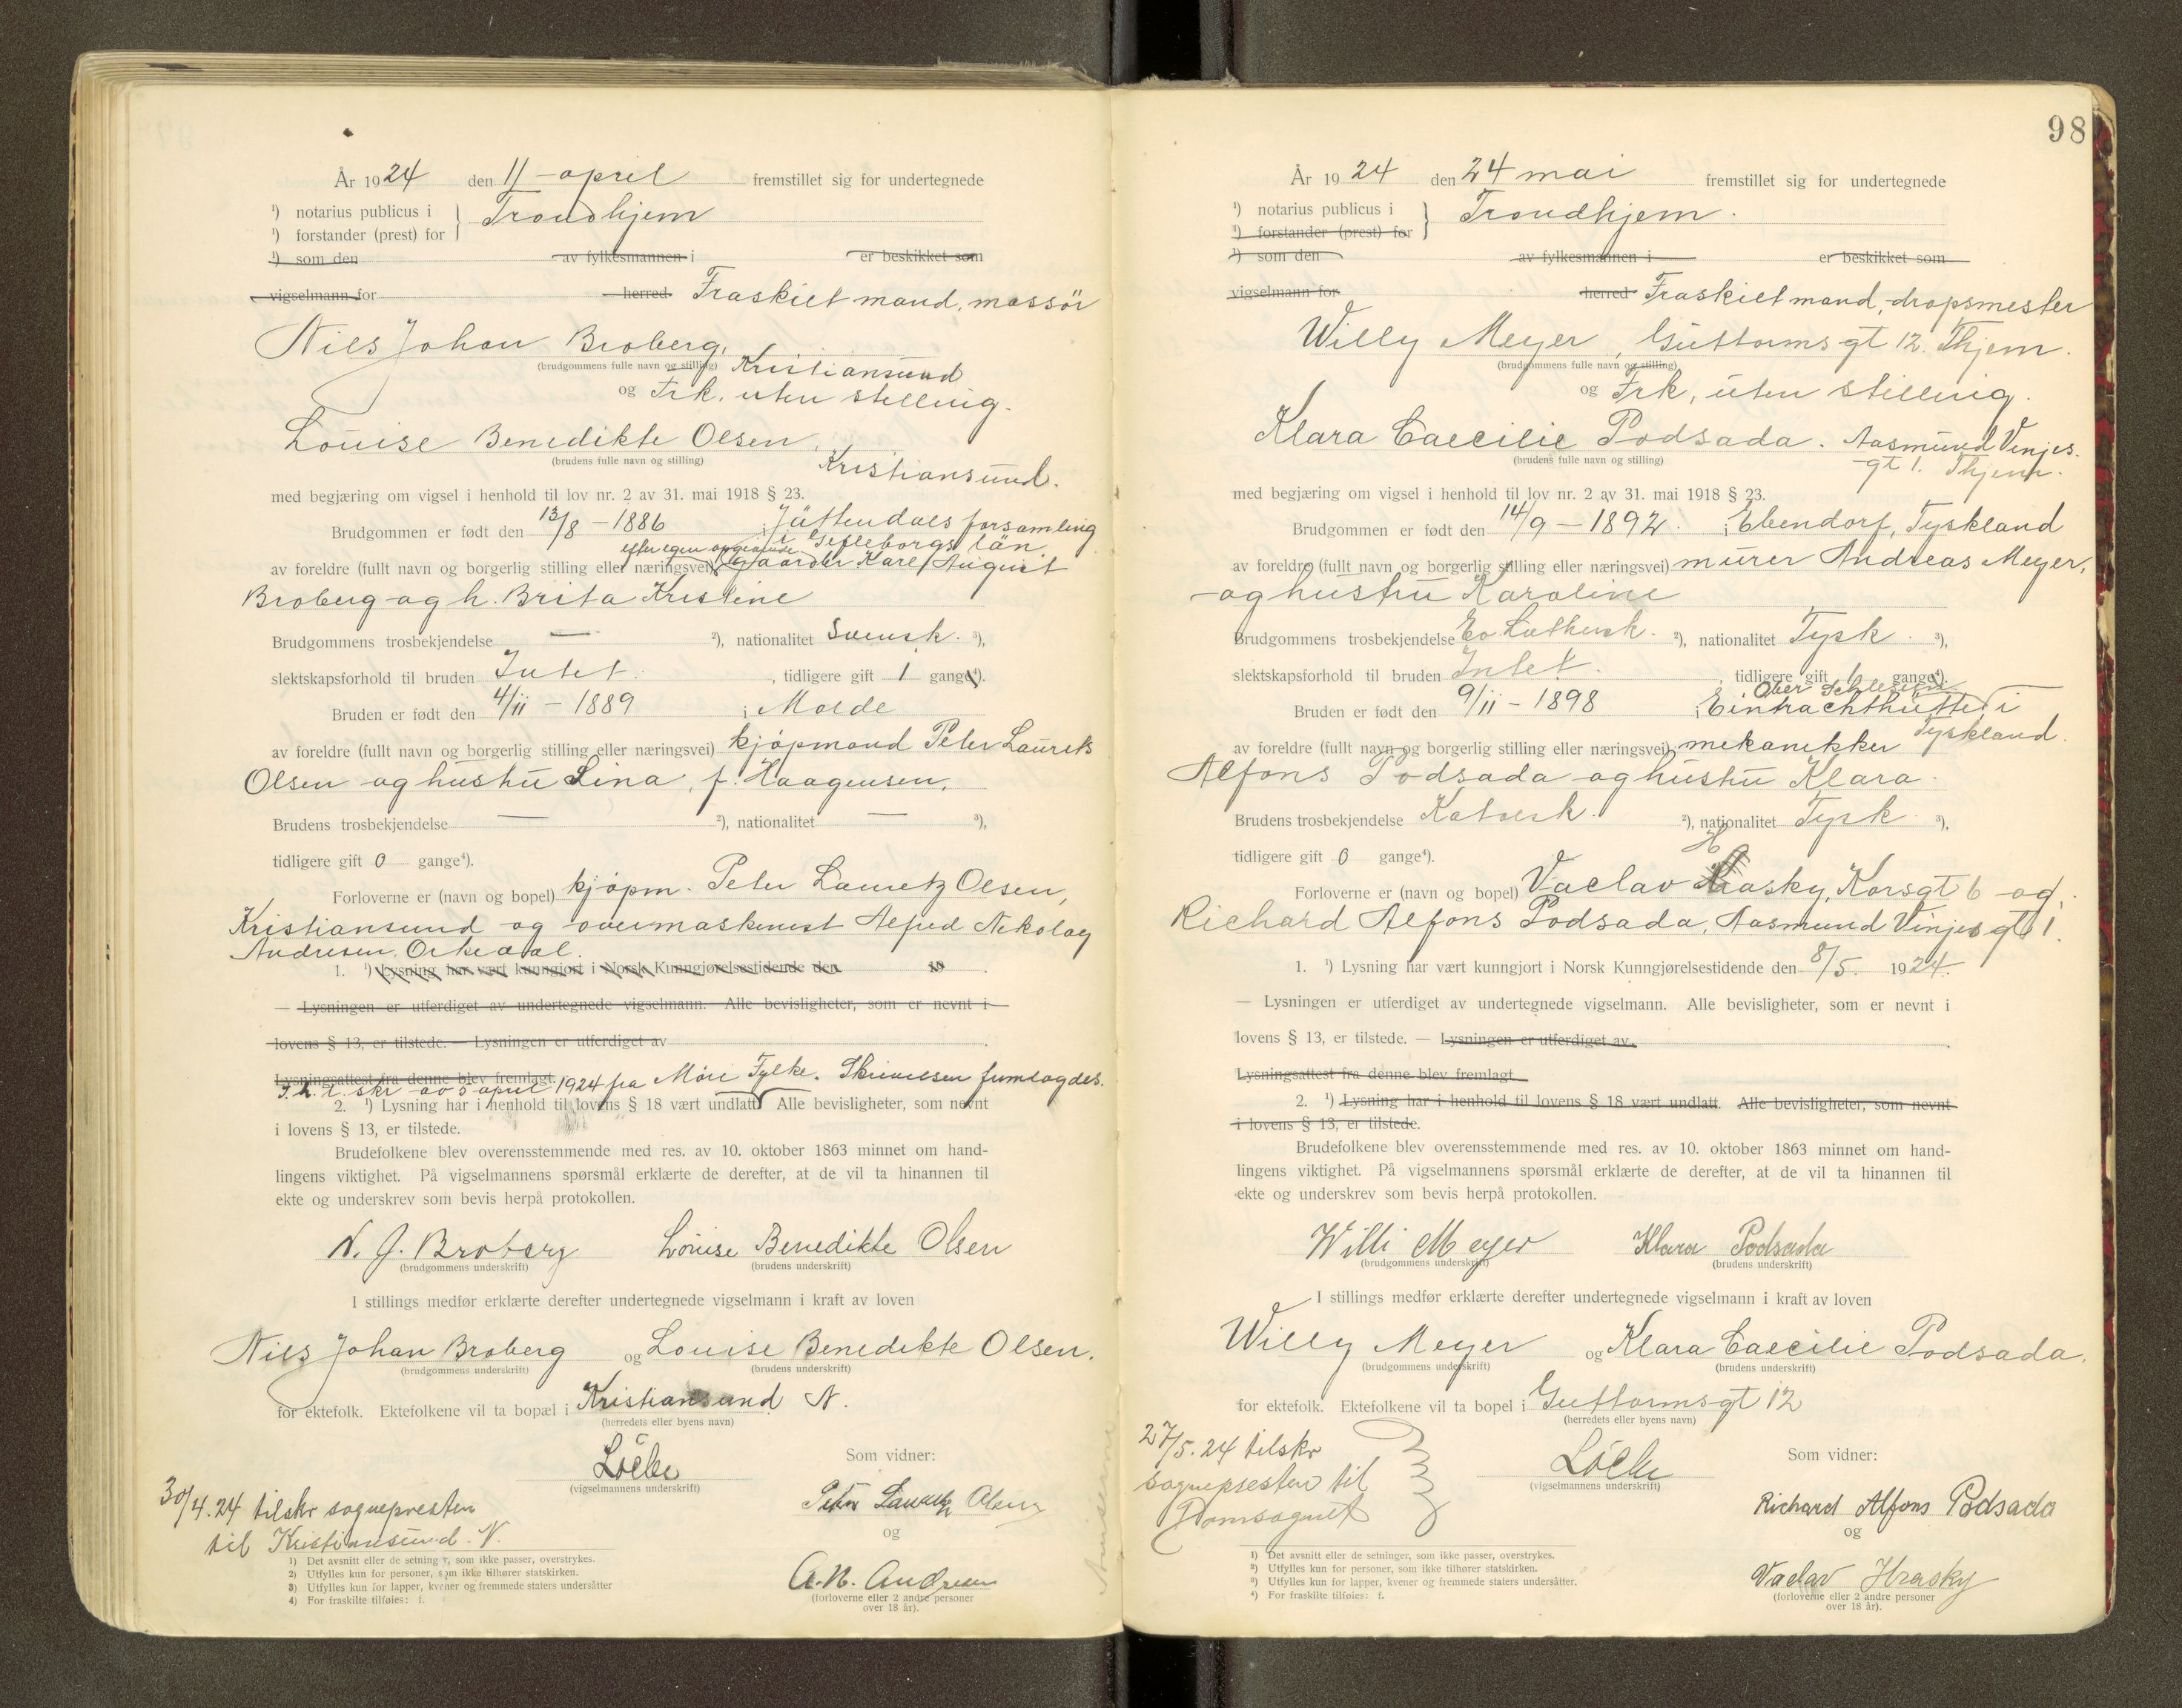 År 1924 den 11 april fremstillet sig for undertegnede
¹) notarius publicus i } Trondhjem
¹) forstander (prest) for
¹) som den av fylkesmannen i er beskikket som
vigselmann for herred Fraskilt mand, massör
Nils Johan Broberg,
(brudgommens fulle navn og stilling) Kristiansund
og Frk. uten stilling.
Louise Benedikte Olsen,
(brudens fulle navn og stilling) Kristiansund.
med begjæring om vigsel i henhold til lov nr. 2 av 31. mai 1918 § 23.
Brudgommen er født den 13/8 - 1886 i Jättendals forsamling
efter egen opgivende i Gefleborgs län.
av foreldre (fullt navn og borgerlig stilling eller næringsvei) Karl August
Broberg og h. Brita Kristine
Brudgommens trosbekjendelse — ²), nationalitet Svensk. ³),
slektskapsforhold til bruden Intet. , tidligere gift 1 gange⁴).
Bruden er født den 4/11 - 1889 i Molde
av foreldre (fullt navn og borgerlig stilling eller næringsvei) kjøpmand Peter Laurits
Olsen og hustru Lina, f. Haagensen,
Brudens trosbekjendelse — ²), nationalitet — ³),
tidligere gift 0 gange⁴).
Forloverne er (navn og bopel) kjøpm. Peter Lauretz Olsen,
Kristiansund og overmaskinist Alfred Nikolay
Andresen, Orkedal.
1. ¹) Lysning har vært kunngjort i Norsk Kunngjørelsestidende den 19 .
— Lysningen er utferdiget av undertegnede vigselmann. Alle bevisligheter, som er nevnt i
lovens § 13, er tilstede. — Lysningen er utferdiget av .
Lysningsattest fra denne blev fremlagt.
skr av 5 april 1924 fra Möre Fylke. Skrivelsen fremlagdes.
2. ¹) Lysning har i henhold til lovens § 18 vært undlatt. Alle bevisligheter, som nevnt
i lovens § 13, er tilstede.
Brudefolkene blev overensstemmende med res. av 10. oktober 1863 minnet om hand-
lingens viktighet. På vigselmannens spørsmål erklærte de derefter, at de vil ta hinannen til
ekte og underskrev som bevis herpå protokollen.
N. J. Broberg Louise Benedikte Olsen
(brudgommens underskrift) (brudens underskrift)
I stillings medfør erklærte derefter undertegnede vigselmann i kraft av loven
Nils Johan Broberg og Louise Benedikte Olsen.
(brudgommens underskrift) (brudens underskrift)
for ektefolk. Ektefolkene vil ta bopæl i Kristiansund N.
(herredets eller byens navn)
(vigselmannens underskrift)
Som vidner:
Peter Lauretz Olsen
og
A. N. Andresen
(forloverne eller 2 andre personer
over 18 år).
30/4.24 tilskr sognepresten
til Kristiansund N.
1) Det avsnitt eller de setninger, som ikke passer, overstrykes.
2) Utfylles kun for personer, som ikke tilhører statskirken.
3) Utfylles kun for lapper, kvener og fremmede staters undersåtter
4) For fraskilte tilføies: f.
98
År 1924 den 24 mai fremstillet sig for undertegnede
¹) notarius publicus i } Trondhjem.
¹) forstander (prest) for
¹) som den av fylkesmannen i er beskikket som
vigselmann for herred Fraskilt mand, dropsmester
Willy Meyer, Guttormsgt 12. Thjem.
(brudgommens fulle navn og stilling)
og Frk, uten stilling.
Klara Caecilie Podsada. Aasmund Vinjes-
(brudens fulle navn og stilling) gt 1. Thjem.
med begjæring om vigsel i henhold til lov nr. 2 av 31. mai 1918 § 23.
Brudgommen er født den 14/9 - 1892. i Ebendorf, Tyskland
av foreldre (fullt navn og borgerlig stilling eller næringsvei) murer Andreas Meyer,
og hustru Karoline
Brudgommens trosbekjendelse Ev. Luthersk. ²), nationalitet Tysk. ³),
slektskapsforhold til bruden Intet. , tidligere gift 1 gange⁴).
Ober Schlesien
Bruden er født den 9/11 - 1898 i Eintrachthütte, i
Tyskland.
av foreldre (fullt navn og borgerlig stilling eller næringsvei) mekanikker
Alfons Podsada og hustru Klara.
Brudens trosbekjendelse Katolsk. ²), nationalitet Tysk. ³),
tidligere gift 0 gange⁴).
Forloverne er (navn og bopel) Vaclav Hrasky, Korsgt 6 og
Richard Alfons Podsada, Aasmund Vinjes gt 1.
1. ¹) Lysning har vært kunngjort i Norsk Kunngjørelsestidende den 8/5. 1924.
— Lysningen er utferdiget av undertegnede vigselmann. Alle bevisligheter, som er nevnt i
lovens § 13, er tilstede. — Lysningen er utferdiget av .
Lysningsattest fra denne blev fremlagt
2. ¹) Lysning har i henhold til lovens § 18 vært undlatt. Alle bevisligheter, som nevnt
i lovens § 13, er tilstede.
Brudefolkene blev overensstemmende med res. av 10. oktober 1863 minnet om hand-
lingens viktighet. På vigselmannens spørsmål erklærte de derefter, at de vil ta hinannen til
ekte og underskrev som bevis herpå protokollen.
Willi Meyer Klara Podsada
(brudgommens underskrift) (brudens underskrift)
I stillings medfør erklærte derefter undertegnede vigselmann i kraft av loven
Willy Meyer og Klara Caecilie Podsada.
(brudgommens underskrift) (brudens underskrift)
for ektefolk. Ektefolkene vil ta bopel i Guttormsgt 12
(herredets eller byens navn)
27/5.24 tilskr
sognepresten til
Domsognet
(vigselmannens underskrift)
Som vidner:
Richard Alfons Podsada
og
Vaclav Hrasky
(forloverne eller 2 andre personer
over 18 år).
¹) Det avsnitt eller de setninger, som ikke passer, overstrykes.
²) Utfylles kun for personer, som ikke tilhører statskirken.
³) Utfylles kun for lapper, kvener og fremmede staters undersåtter.
⁴) For fraskilte tilføies: f.